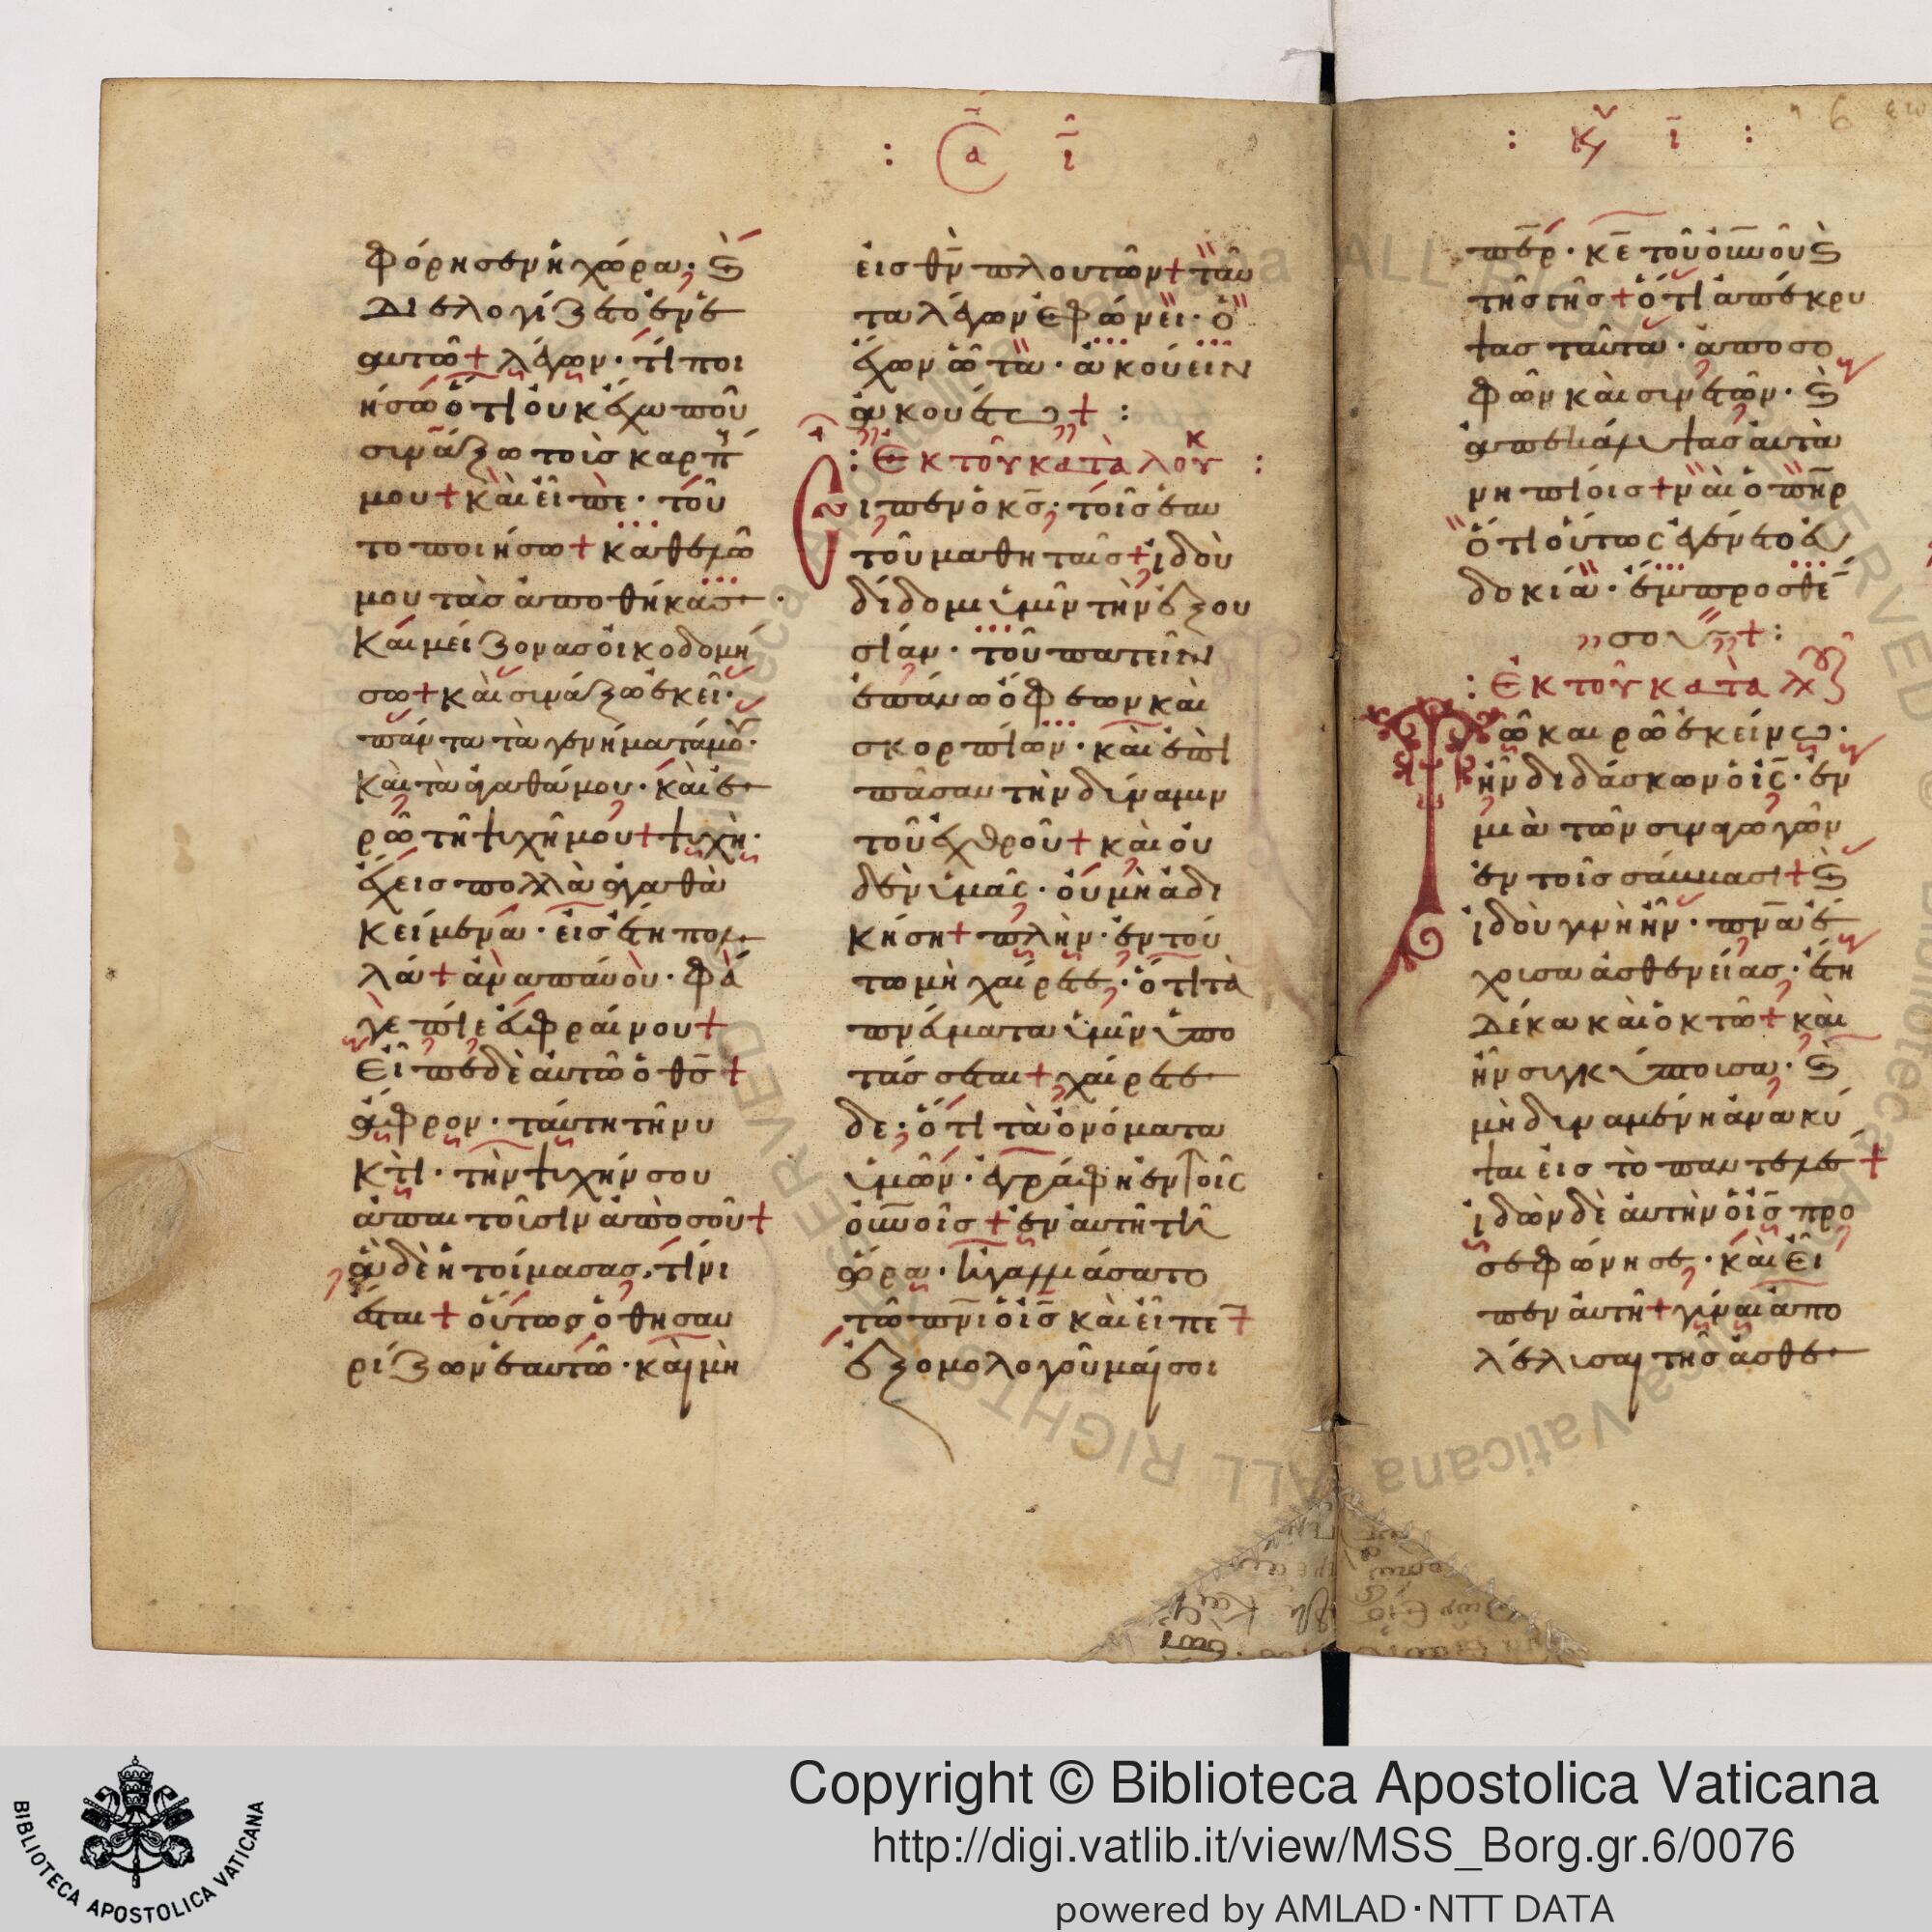 : α ι
φόρησενἡχώρα· ϗ
Διελογίζετοἐνἑ
αυτῶ+ λέγων· τί ποι
ήσωὅτι οὐκ ἔχω ποῦ
σινάξω τοὶς καρπ
μου+ κὰι εἶπε· τοῦ
το ποιήσω+ καθελῶ
μου τὰσ ἀποθήκασ·
Κάι μείζονασ ὀικοδομή
σω+ κὰι σινάξωἐκεῖ·
πάντα τὰ γενήματάμου·
Κὰι τὰ ἀγαθάμου· κὰι ἐ
ρῶ τῆ ψιχῆ μου+ ψιχὴ·
ἔχεισ πολλὰ ἀγαθὰ
κείμενα· εἰσ ἔτη πολ
λά+ ἀναπάυὸυ· Φά
γε πίε ἐυφράινου+
Εἶπεδὲ ἀυτῶ ὁ θς+
ἄφρον· τάυτη τῆ νυ
Κτὶ· τὴν ψιχήν σου
ἀπαιτοῦσιν ἀπὸ σοῦ+
ἃ δὲ ἡτοίμασασ, τίνι
ἔται+ ὅυτωσ ὁ θησαυ
ρίζων ἑαυτῶ· κὰι μὴ
ἐισ θν πλουτῶν+ ταῦ
τα λέγων ἐφώνει· ὁ
ἔχων ὦτα· ἀκούειν
ἀκουέτω+ :
: Ἐκ τοῦ κατὰ λουκ :
Ειπεν ὁ κς· τοῖσ ἑαυ
τοῦ μαθηταῖσ+ ἰδοὺ
δίδομι ὑμῖν τὴν ἐξου
σίαν· τοῦ πατεῖν
ἐπάνω ὄφεων κὰι
σκορπίων· κὰι ἐπὶ
πᾶσαν τὴν δίναμιν
τοῦ ἐχθροῦ+ κὰι οὐ
δὲν ὑμᾶς· ὀυ μὴ ἀδι
κήση+ πλὴν· ἐν τού
τω μὴ χαίρετε· ὅτι τὰ
πνέματα ὑμῖν ὑπο
τάσσεται+ χαίρετε
δε· ὅτι τὰ ὀνόματα
ὑμῶν· ἐγράφη ἐν τοῖς
οὐνοῖσ+ ἐν αὐτῆ τῆ
ὥρα· ἠγαλλιάσατο
τῶ πνι ὁ ις κὰι εἶπε+
ἐξομολογοῦμαί σοι
: κυ ι :
περ· κε τοῦ οὐνοῦ ϗ
τῆσ γῆσ+ ὅτι ἀπέκρυ
ψασ ταῦτα· ἀπο σο
φῶν κὰι σινετῶν· ϗ
ἀπεκάλυψασ ἀυτὰ
νηπίοισ+ νὰι ὁ πηρ
ὅτι οὕτως ἐγένετο ἐυ
δοκία· ἔμπροσθέ
σου+ :
: Ἐκ τοῦ κατὰ λουκ
Τῶ καιρῶ ἐκείνω·
ἦν διδάσκων ὁ ις· ἐν
μιὰ τῶν σιναγωγῶν
ἐν τοῖσ σάββασι+ ϗ
ἰδοὺ γυνὴ ἦν· πνα ἔ
χρισα ἀσθενείασ· ἔτη
Δέκα κὰι ὀκτῶ+ κὰι
ἦν σιγκύπτοισα· ϗ
μὴ διναμένη ἀνακύ
ψαι ἐισ τὸ παντελε+
ἰδὼν δὲ ἀυτὴν ὁ ις προ
σεφώνησε· κὰι εἶ
πεν ἀυτῆ+ γίναι ἀπο
λέλισαι τῆσ ἀσθε
Copyright © Biblioteca Apostolica Vaticana
http://digi.vatlib.it/view/MSS_Borg.gr.6/0076
powered by AMLAD·NTT DATA
BIBLIOTECA APOSTOLICA VATICANA